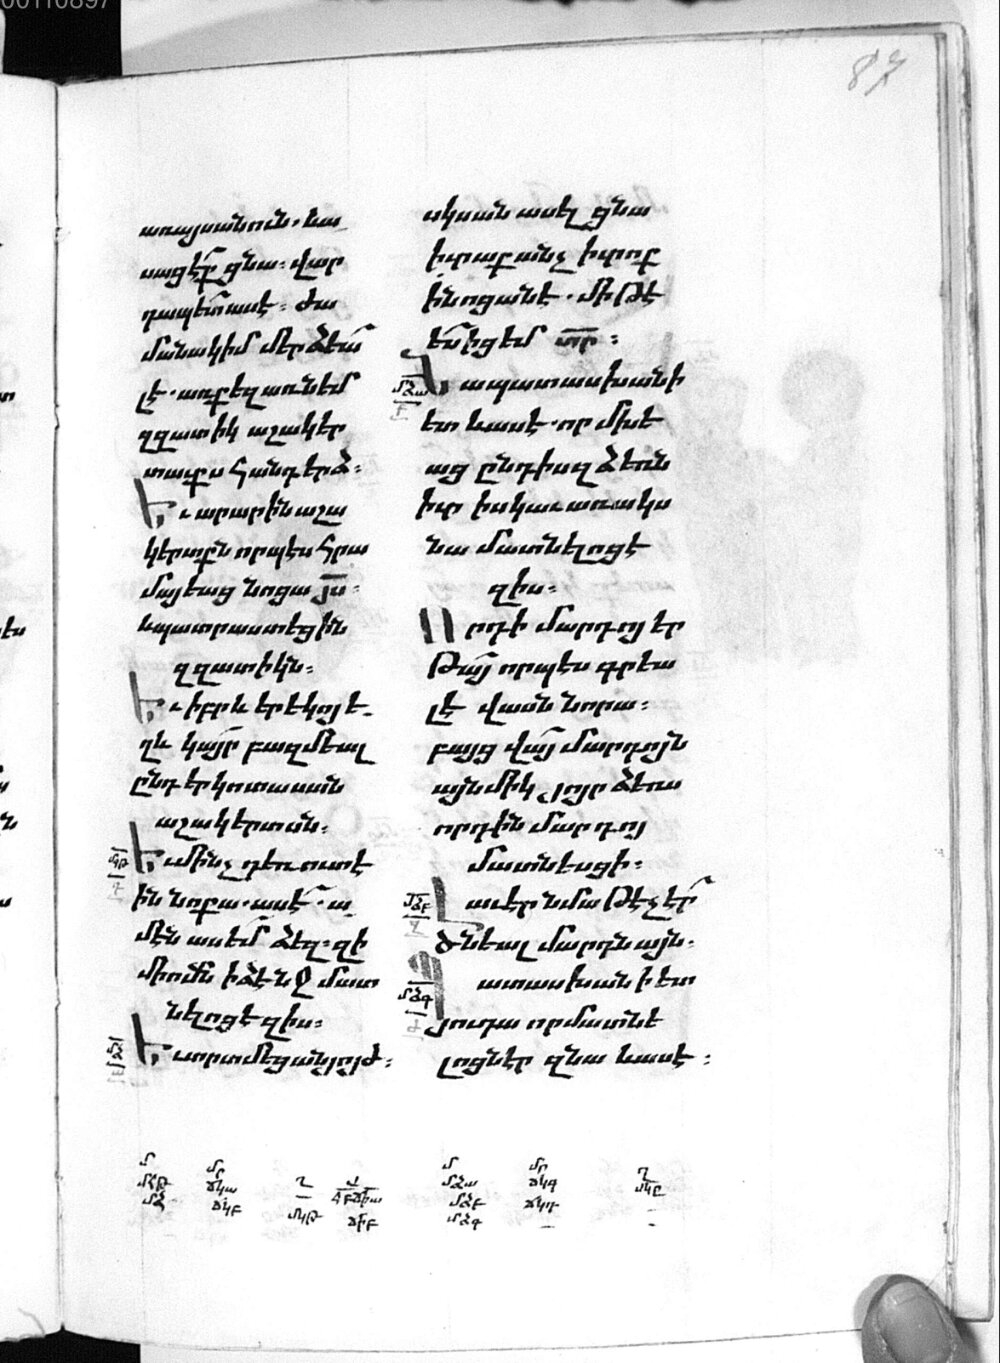 87
առայսանուն. եւա
սացէք ցնա։ վար
դապետ ասէ։ ժա
մանակ իմ մերձեալ
է. առ քեզ առնեմ
զզատիկ աշակեր
տաւքս հանդերձ։
Եւ արարին աշա
կերտքն որպէս հրա
մայեաց նոցա յս։
եւ պատրաստեցին
զզատիկն։
Եւ իբրև երեկոյ ե
ղև կայր բազմեալ
ընդ երկոտասան
աշակերտսն։
Եւ մինչ դեռ ուտէ
ին նոքա. ասէ. ա
մէն ասեմ ձեզ։ զի
մի ոմն ի ձէնջ մատ
նելոց է զիս։
Եւ տրտմեցան յոյժ։
սկսան ասել ցնա
իւրաքանչիւրոք
ի նոցանէ. մի թէ
ես իցեմ տր։
Նա պատասխանի
ետ և ասէ. որ մխե
աց ընդ իս զձեռն
իւր ի սկաւառակս
նա մատնելոց է
զիս։
Որդի մարդոյ եր
թայ որպէս գրեա
լ է վասն նորա։
բայց վայ մարդոյն
այնմիկ յոյր ձեռս
որդին մարդոյ
մատնեսցի։
Լաւ էր նմա թէ չէր
ծնեալ մարդն այն։
Պատասխանի ետ
յուդա որ մատնե
լոցն էր զնա և ասէ։